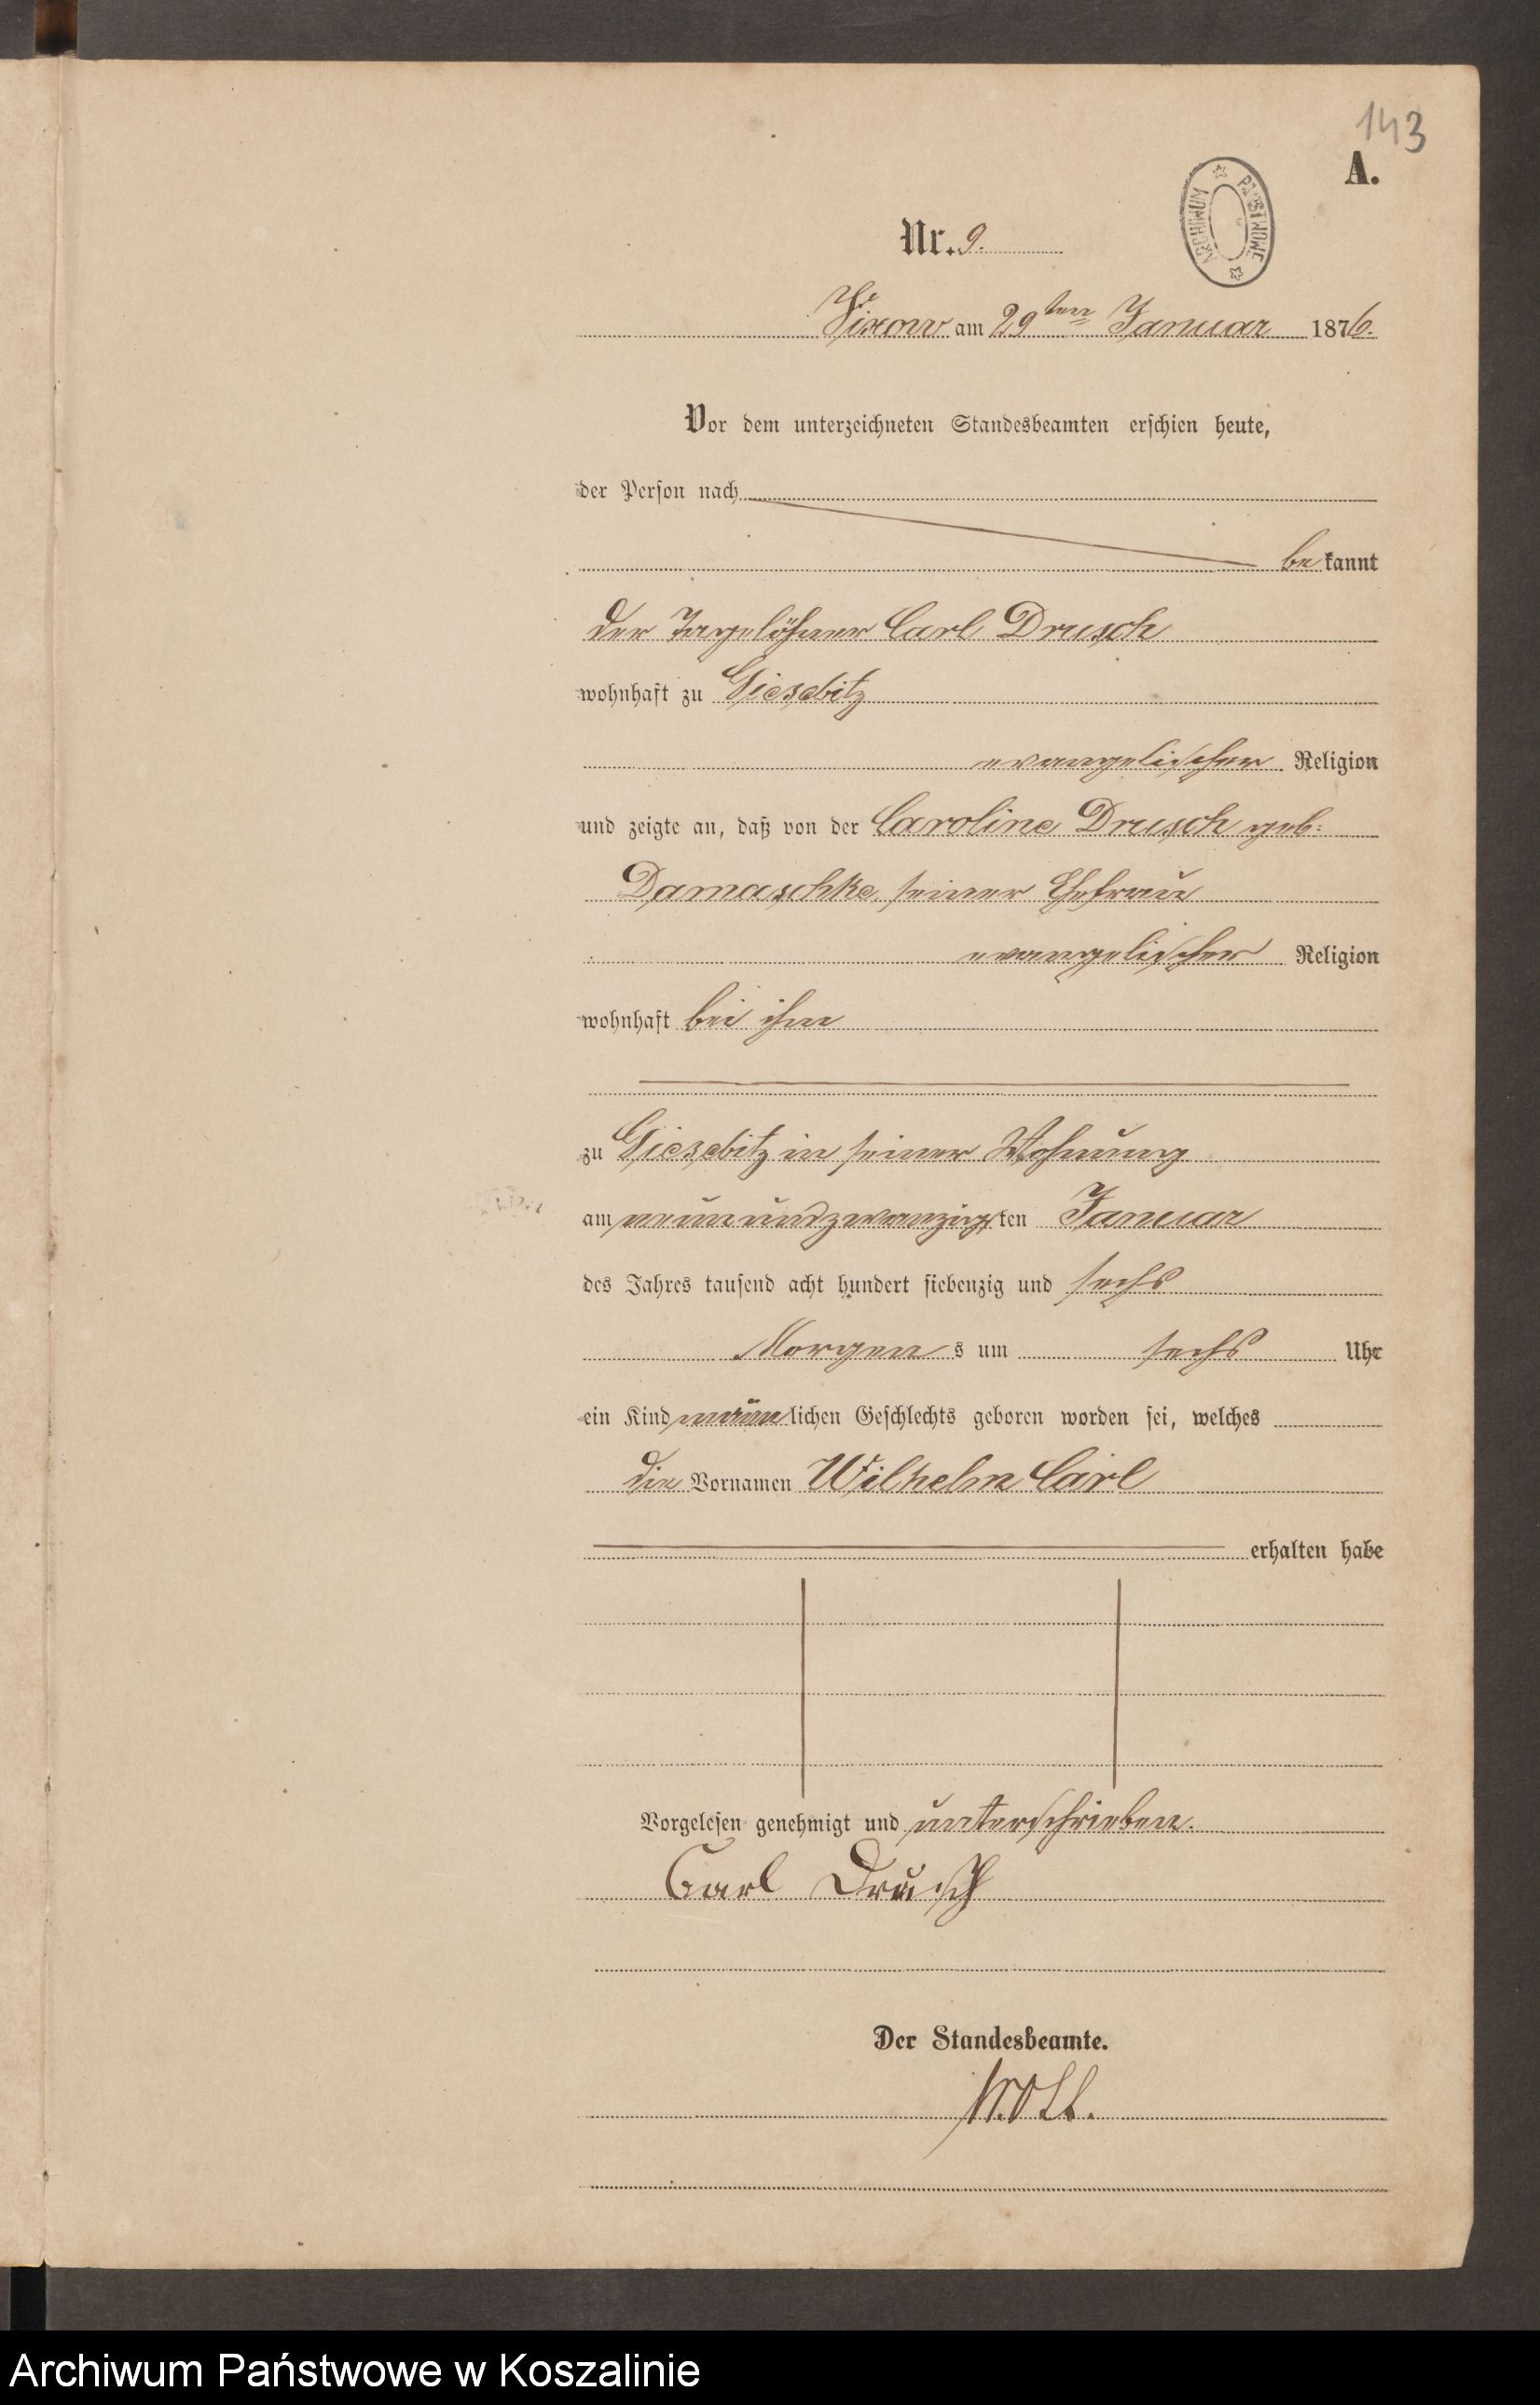 143
A.
ARCHIWUM PAŃSTWOWE
Nr. 9.
Vixow am 29ten Januar 1876.
Vor dem unterzeichneten Standesbeamten erschien heute,
der Person nach
bekannt
der Tagelöhner Carl Drusch
wohnhaft zu Giesebitz
evangelischer Religion
und zeigte an, daß von der Caroline Drusch geb:
Damaschke, seiner Ehefrau
evangelischer Religion
wohnhaft bei ihm
zu Giesebitz in seiner Wohnung
am neunundzwanzigsten Januar
des Jahres tausend acht hundert siebenzig und sechs
Morgens um sechs Uhr
ein Kind männlichen Geschlechts geboren worden sei, welches
die Vornamen Wilhelm Carl
erhalten habe
Vorgelesen genehmigt und unterschrieben.
Carl Drusch
Der Standesbeamte.
Archiwum Państwowe w Koszalinie